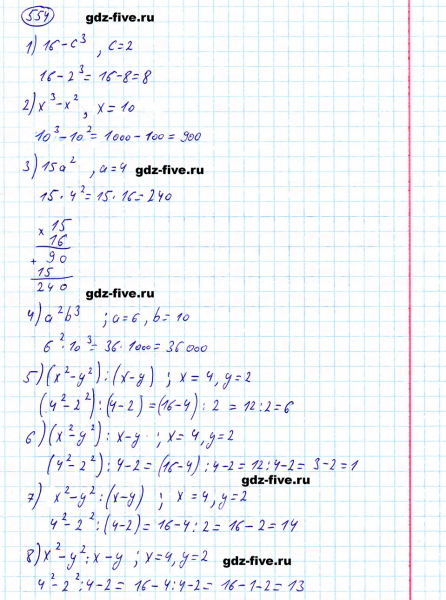 554 gdz-five.ru
1) 16-c³, c=2
16-2³=16-8=8
2) x³-x², x=10
10³-10²=1000-100=900
3) 15a², a=4 gdz-five.ru
15·4²=15·16=240
× 15
16
+ 90
15
240 gdz-five.ru
4) a²b³ ; a=6, b=10
6²·10³=36·1000=36000
5) (x²-y²):(x-y) ; x=4, y=2
(4²-2²):(4-2)=(16-4):2=12:2=6
6) (x²-y²):x-y ; x=4, y=2
(4²-2²):4-2=(16-4):4-2=12:4-2=3-2=1
gdz-five.ru
7) x²-y²:(x-y) ; x=4, y=2
4²-2²:(4-2)=16-4:2=16-2=14
8) x²-y²:x-y ; x=4, y=2 gdz-five.ru
4²-2²:4-2=16-4:4-2=16-1-2=13